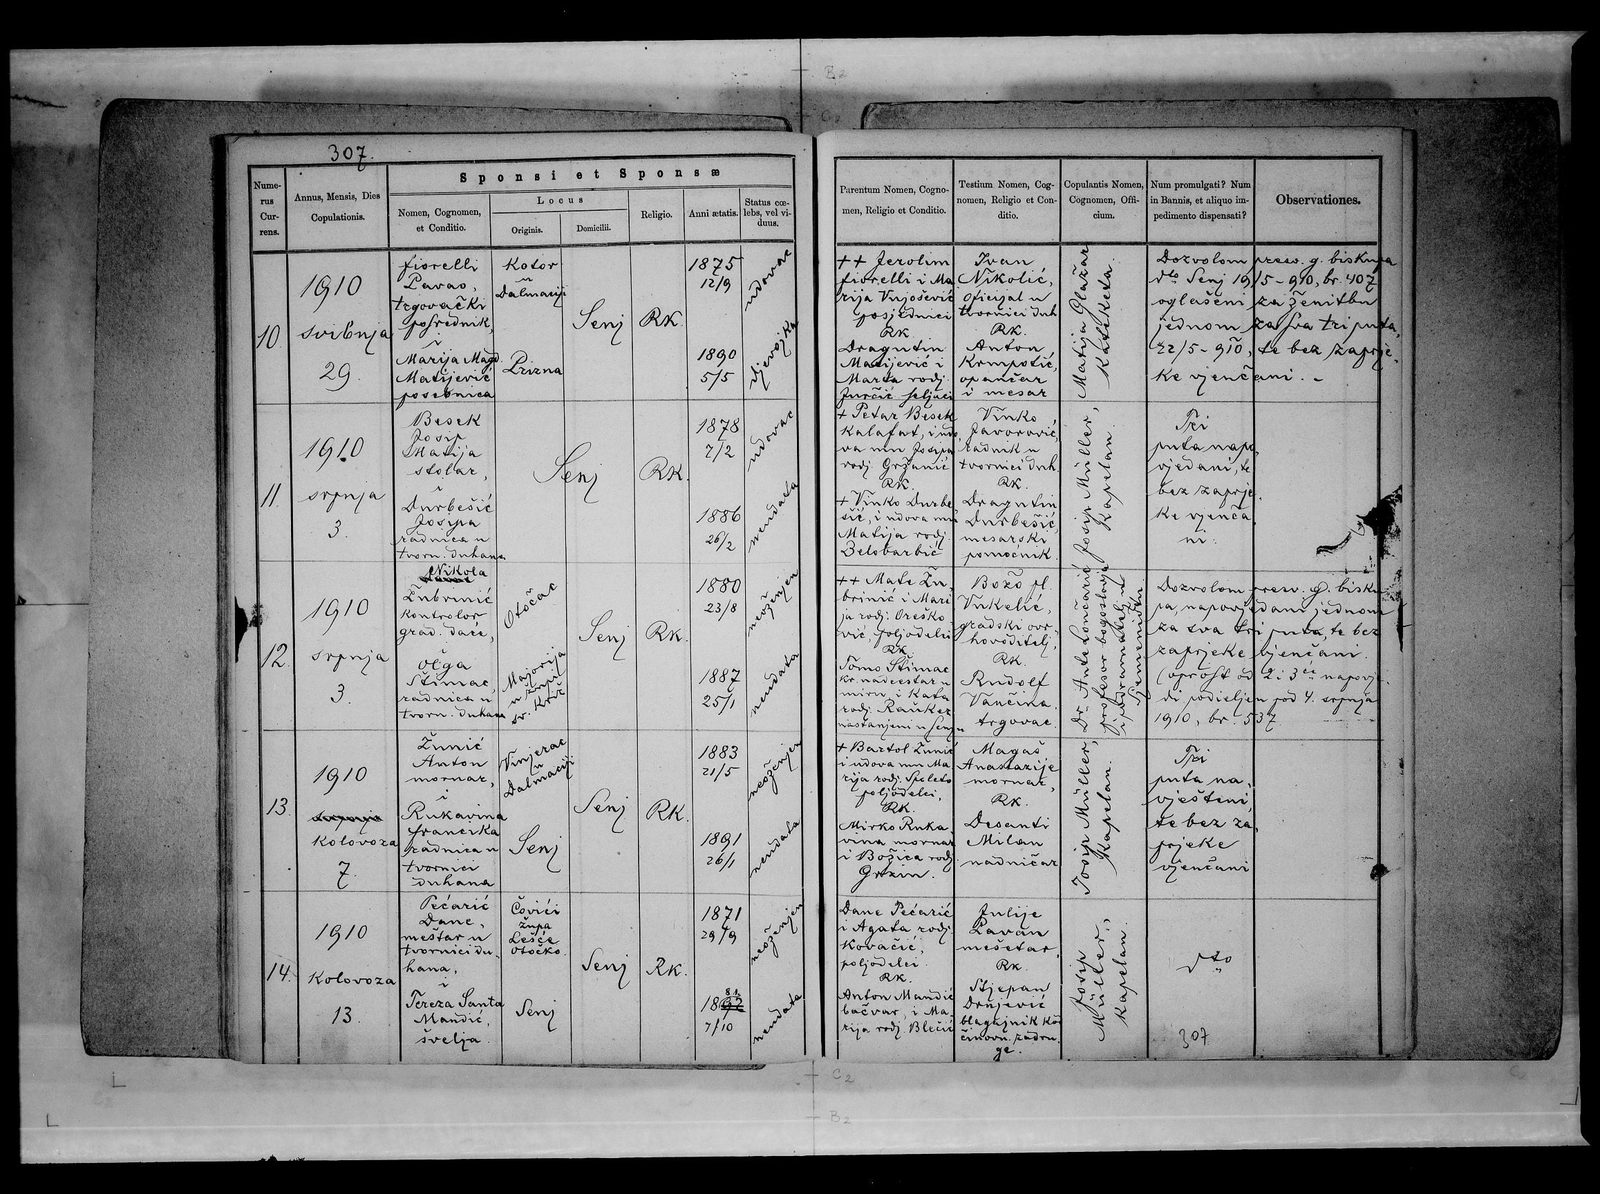 307.
Sponsi et Sponsæ
Nume-
rus
Cur-
rens.
Annus, Mensis, Dies
Copulationis.
Nomen, Cognomen,
et Conditio.
Locus
Originis.
Domicilii.
Religio.
Anni ætatis.
Status cœ-
lebs, vel vi-
duus.
Parentum Nomen, Cogno-
men, Religio et Conditio.
Testium Nomen, Cog-
nomen, Religio et Con-
ditio.
Copulantis Nomen,
Cognomen, Offi-
cium.
Num promulgati? Num
in Bannis, et aliquo im-
pedimento dispensati?
Observationes.
10
1910
svibnja
29.
Fiorelli
Pavao,
trgovački
posrednik,
i
Marija Magd.
Matijević
posebnica
Kotor
u
Dalmaciji
Prizna
Senj
RK.
1875
12/9
1890
5/5
udovac
djevojka
++ Jerolim
Fiorelli i Ma
rija Vnjošević
posjednici
RK
Dragutin
Matijević i
Marta rodj.
Jurčić seljaci
Ivan
Nikolić,
oficijal u
tvornici duh.
RK.
Anton
Krmpotić,
opančar
i mesar
Matija Glažar
Kateketa.
Dozvolom presv. g. biskupa
dto Senj 19/5-910, br. 407
oglašeni za ženitbu
jednom za sva tri puta,
22/5-910, te bez zaprje-
ke vjenčani. -
11
1910
srpnja
3.
Besek
Josip
Matija
stolar,
i
Durbešić
Josipa
radnica u
tvorn. duhana
Senj
RK.
1878
7/2
1886
26/2
udovac
neudata
+ Petar Besek
kalafat, i udo
va mu Josipa
rodj. Gržanić
RK.
+ Vinko Durbe
šić, i udova mu
Matija rodj.
Belobarbić
Vinko
Javorović,
radnik u
tvornici duh.
RK.
Dragutin
Durbešić,
mesarski
pomoćnik.
Josip Müller,
Kapelan.
Tri
puta napo
vjedani, te
bez zaprje-
ke vjenča
ni.
12
1910
srpnja
3.
Nikola
Žubrinić
kontrolor
grad. daće,
i
Olga
Štimac,
radnica u
tvorn. duhana
Otočac
Majorija
u župi
sv. Križ
Senj
RK.
1880
23/8
1887
25/1
neoženjen
neudata
++ Mate Žu
brinić i Mari
ja rodj. Oreško
vić, poljodelci
RK.
Tomo Štimac
kr. nadcestar u
miru, i Kata
rodj. Raukez
nastanjeni u Senju
Božo pl.
Vukelić,
gradski ovr
hovoditelj,
RK.
Rudolf
Vančina
trgovac.
Dr. Ante Lončarić
profesor bogoslovja
i podravnatelj u
sjemeništu
Dozvolom presv. g. bisku
pa, napovjedani jednom
za sva tri puta, te bez
zaprjeke vjenčani.
(oprost od 2. i 3će napovje-
di podieljen pod 4. srpnja
1910, br. 537
13.
1910
Kolovoza
7.
Žunić
Anton
mornar,
i
Rukavina
Francika
radnica u
tvornici
duhana
Vinjerac
u
Dalmaciji
Senj
Senj
RK.
1883
21/5
1891
26/1
neoženjen
neudata
+ Bartol Žunić
i udova mu Ma
rija rodj. Speleto
poljodelci,
RK.
Mirko Ruka
vina mornar
i Božica rodj.
Grzin.
Magaš
Anastazije
mornar,
RK.
Desanti
Milan
nadničar
Josip Müller,
Kapelan.
Tri
puta na,
vješteni,
te bez za,
prjeke
vjenčani
14.
1910
Kolovoza
13.
Pećarić
Dane,
meštar u
tvornici du-
hana,
i
Tereza Santa
Mandić,
švelja.
Čovići
župa
Lešće
Otočko.
Senj
Senj
RK.
1871
29/9
1882
7/10
neoženjen
neudata
Dane Pećarić
i Agata rodj.
Kovačić,
poljodelci.
RK.
Anton Mandić
bačvar, i Ma
rija rodj. Blečić
Julije
Lavan
mešetar,
RK.
Stjepan
Dražević
blagajnik kod
činovn. zadru
ge.
Josip
Müller,
Kapelan
dto
307